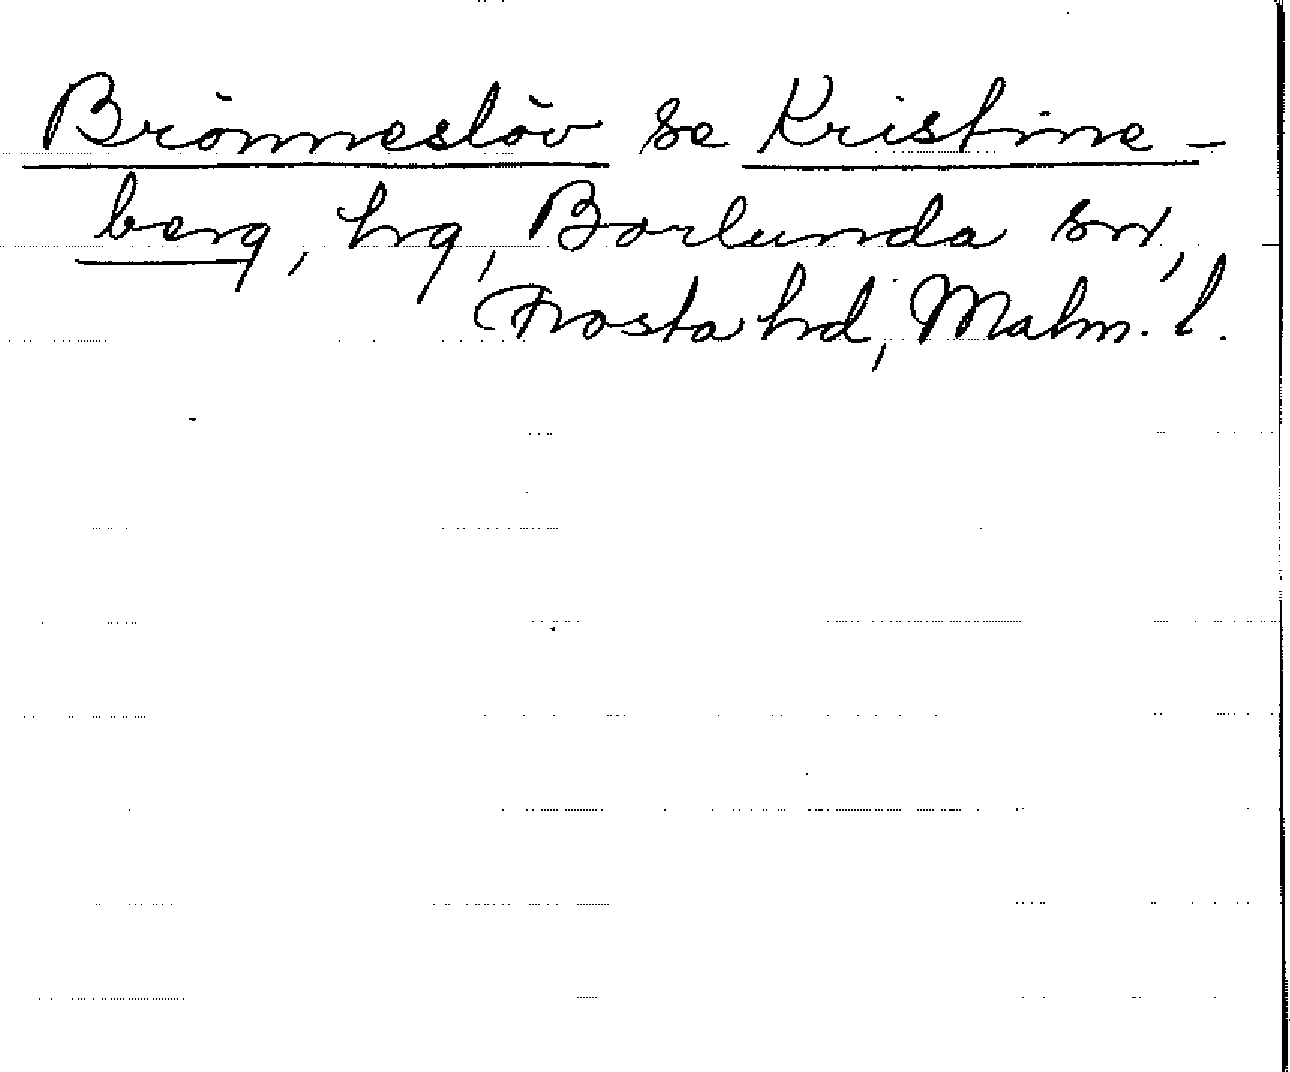 Brönneslöv se Kristine-
berg, hrg, Borlunda sn,
Frosta hd, Malm. l.